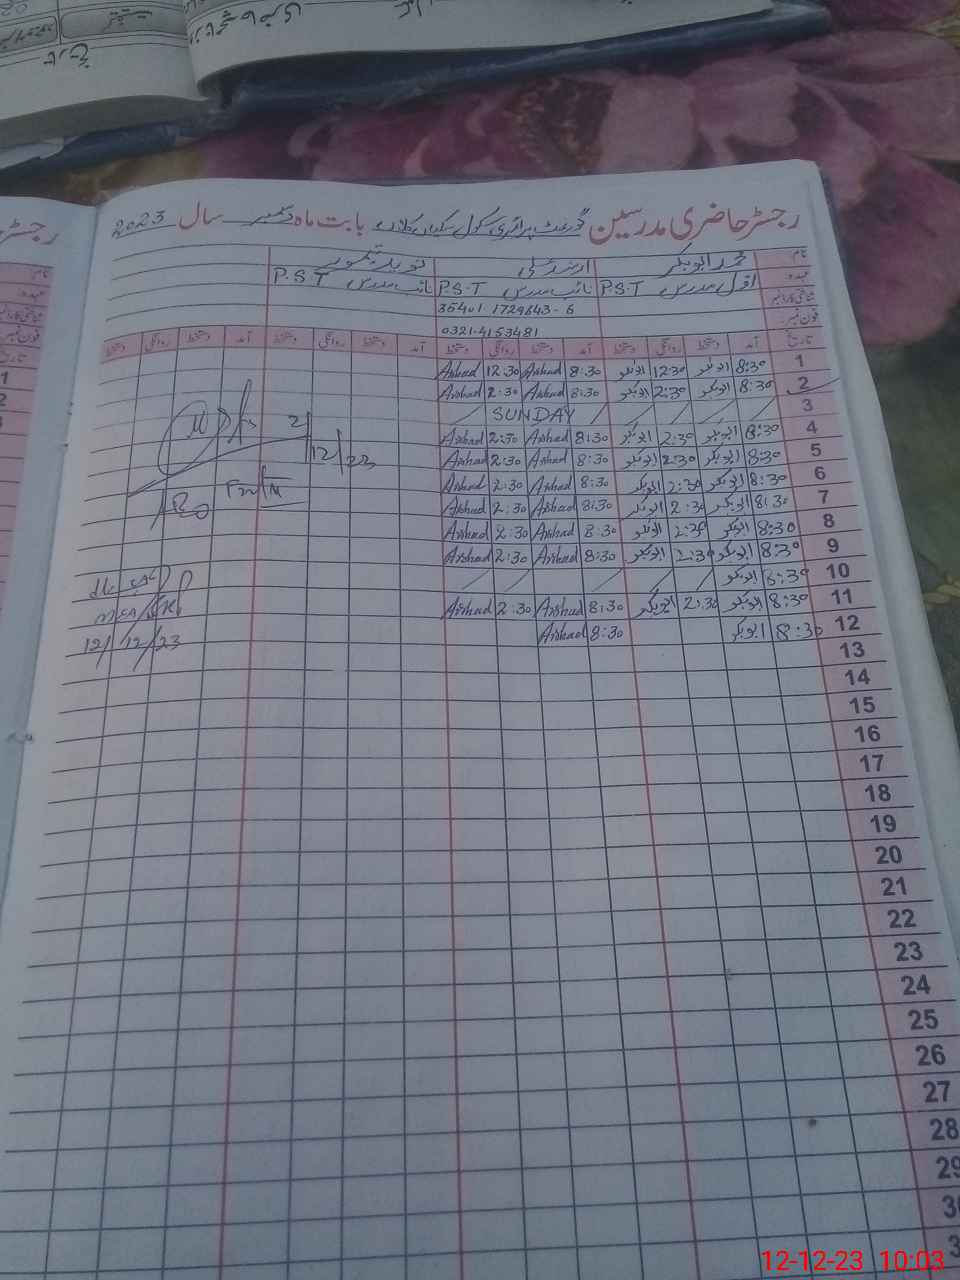 رجسٹر حاضری مدرسین گورنمنٹ پرائمری سکول بابت ماہ دسمبر سال 2023
نام محمد ابوبکر ارشد علی نوید
عہدہ اول مدرس P.S.T نائب مدرس P.S.T نائب مدرس P.S.T
شناختی کارڈ نمبر 35401-1729643-6
فون نمبر 0321-4153481
تاریخ آمد دستخط روانگی دستخط آمد دستخط روانگی دستخط آمد دستخط روانگی دستخط
1 8:30 ابوبکر 12:30 ابوبکر 8:30 Arshad 12:30 Arshad
2 8:30 ابوبکر 2:30 ابوبکر 8:30 Arshad 2:30 Arshad
3 SUNDAY
4 8:30 ابوبکر 2:30 ابوبکر 8:30 Arshad 2:30 Arshad
5 8:30 ابوبکر 2:30 ابوبکر 8:30 Arshad 2:30 Arshad
6 8:30 ابوبکر 2:30 ابوبکر 8:30 Arshad 2:30 Arshad
7 8:30 ابوبکر 2:30 ابوبکر 8:30 Arshad 2:30 Arshad
8 8:30 ابوبکر 2:30 ابوبکر 8:30 Arshad 2:30 Arshad
9 8:30 ابوبکر 2:30 ابوبکر 8:30 Arshad 2:30 Arshad
10 8:30 ابوبکر
11 8:30 ابوبکر 2:30 ابوبکر 8:30 Arshad 2:30 Arshad
12 8:30 ابوبکر 8:30 Arshad
12/12/23
13
14
15
16
17
18
19
20
21
22
23
24
25
26
27
28
29
12-12-23 10:03